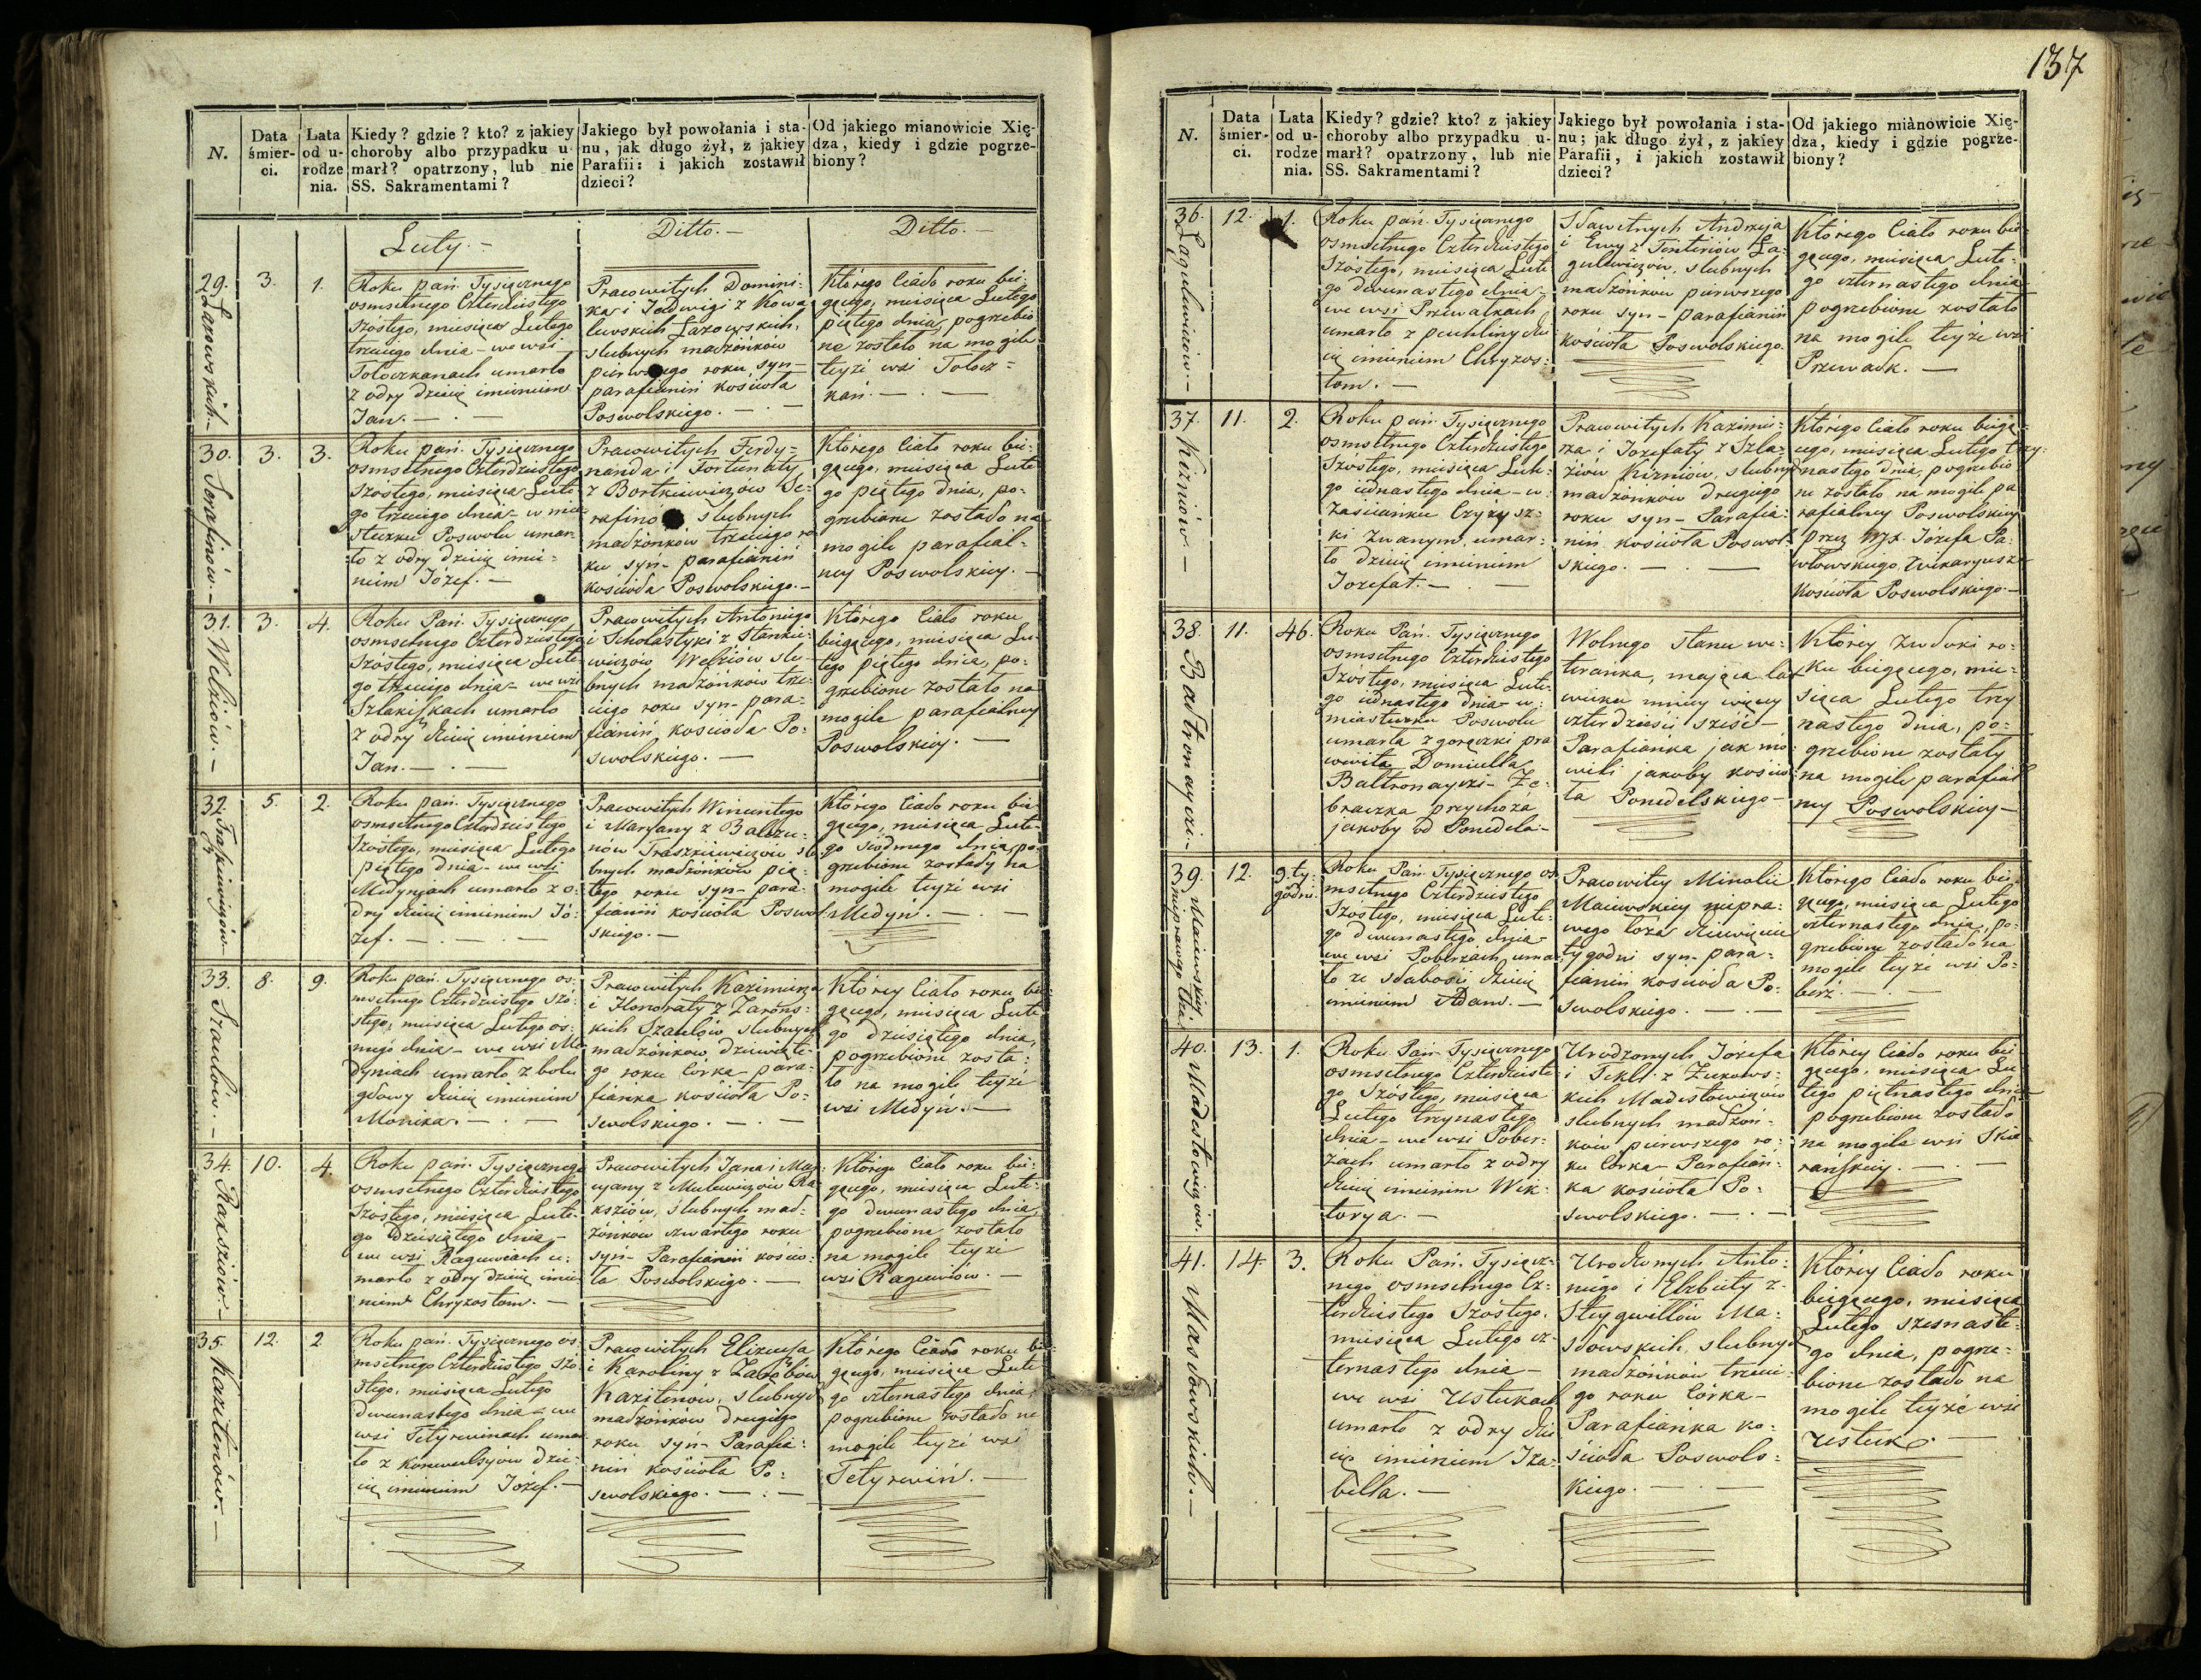 137
N.
Data śmierci.
Lata od urodzenia.
Kiedy? gdzie? kto? z jakiey
choroby albo przypadku u-
marł? opatrzony, lub nie
SS. Sakramentami?
Jakiego był powołania i sta-
nu, jak długo żył, z jakiey
Parafii: i jakich zostawił
dzieci?
Od jakiego mianowicie Xię-
dza, kiedy i gdzie pogrze-
biony?
Luty. -
Ditto. -
Ditto. -
29. Łazowskich. -
3.
1.
Roku pań. Tysiącznego
osmsetnego Czterdziestego
szóstego, miesiąca Lutego
trzeciego dnia - we wsi
Tołoczkanach umarło
z odry dziecię imieniem
Jan. -
Pracowitych Domini-
ka i Jadwigi z Kowa
lewskich Łazowskich,
slubnych małżonków
pierwszego roku syn
parafianin kościoła
Poswolskiego. -
Którego Ciało roku bie-
gącego, miesiąca Lutego
piątego dnia, pogrzebio
ne zostało na mogile
teyże wsi Tołocz=
kań. -
30. Serafinów. -
3.
3.
Roku pań. Tysiącznego
osmsetnego Czterdziestego
szóstego, miesiąca Lute
go trzeciego dnia - w mia
steczku Poswolu umar
ło z odry dziecię imie-
niem Józef. -
Pracowitych Ferdy=
nanda i Fortunaty
z Bortkiewiczów Se-
rafinó slubnych
małżonków trzeciego ro
ku syn - parafianin
kościoła Poswolskiego. -
Którego Ciało roku bie-
gącego, miesiąca Lute
go piątego dnia, po-
grzebione zostało na
mogile parafial-
ney Poswolskiey. -
31. Welziów. -
3.
4.
Roku Pań. Tysiącznego
osmsetnego Czterdziestego
szóstego, miesiąca Lute
go trzeciego dnia - we wsi
umarło
z odry dziecię imieniem
Jan. -
Pracowitych Antoniego
i Scholastyki z Stankie-
wiczów Welziów slu-
bnych małżonków trze-
ciego roku syn - para-
fianin kościoła Po-
swolskiego. -
Którego Ciało roku
biegącego, miesiąca Lu-
tego piątego dnia, po-
grzebione zostało na
mogile parafialney
Poswolskiey. -
32. Traszkiewiczów -
5.
2.
Roku pań. Tysiącznego
osmsetnego Czterdziestego
Szóstego, miesiąca Lutego
piątego dnia - we wsi
Medyniach umarło z o-
dry dziecię imieniem Jó-
zef. -
Pracowitych Wincentego
i Maryany z
nów Traszkiewiczów slu
bnych małżonków pią-
tego roku syn - para-
fianin kościoła Poswol
skiego. -
Którego Ciało roku bie
gącego, miesiąca Lute-
go siódmego dnia, po-
grzebione zostały na
mogile teyże wsi
Medyń. -
33. Szaulów. -
8.
9.
Roku pań. Tysiącznego os-
msetnego Czterdziestego szó-
stego, miesiąca Lutego ós-
mego dnia - we wsi Me
dyniach umarło z bolu
głowy dziecię imieniem
Monika. -
Pracowitych Kazimierza
i Honoraty z Zarons-
kich Szaulów slubnych
małżonków, dziewiąte-
go roku Córka para-
fianka kościoła Po-
swolskiego. -
Którey Ciało roku bie-
gącego, miesiąca Lute
go dziesiątego dnia,
pogrzebione zosta-
ło na mogile teyże
wsi Medyń. -
34. Rakszów -
10.
4
Roku pań. Tysiącznego
osmsetnego Czterdziestego
szóstego, miesiąca Lute-
go dziesiątego dnia -
we wsi Raguwiach u-
marło z odry dziecię imie
niem Chryzostom. -
Pracowitych Jana i Mar-
yany z Mulewiczów Ra
kszów, slubnych mał-
żonków czwartego roku
syn - Parafianin kościo-
ła Poswolskiego. -
Którego Ciało roku bie-
gącego, miesiąca Lute-
go dwunastego dnia
pogrzebione zostało
na mogile teyże
wsi Raguwiów. -
35. Kazitenów. -
12.
2
Roku pań. Tysiącznego os-
msetnego Czterdziestego szó-
stego, miesiąca Lutego
dwunastego dnia - we
wsi Tetyrwinach umar
ło z konwulsyów dzie-
cię imieniem Józef. -
Pracowitych Elizeusza
i Karoliny z
Kazitenów, slubnych
małżonków drugiego
roku syn - Parafia-
nin kościoła Po-
swolskiego. -
Którego Ciało roku bie-
gącego, miesiąca Lute
go czternastego dnia,
pogrzebione zostało na
mogile teyże wsi
Tetyrwiń. -
N.
Data śmierci.
Lata od urodzenia.
Kiedy? gdzie? kto? z jakiey
choroby albo przypadku u-
marł? opatrzony, lub nie
SS. Sakramentami?
Jakiego był powołania i sta-
nu; jak długo żył, z jakiey
Parafii, i jakich zostawił
dzieci?
Od jakiego mianowicie Xię-
dza, kiedy i gdzie pogrze-
biony?
36. Łagulewiczów. -
12.
1.
Roku pań. Tysiącznego
osmsetnego Czterdziestego
Szóstego, miesiąca Lute
go dwunastego dnia -
we wsi Przewałkach
umarło z puchliny dzie
cię imieniem Chryzos-
tom. -
Sławetnych Andrzeja
i Ewy z Ła-
gulewiczów, slubnych
małżonków pierwszego
roku syn - parafianin
kościoła Poswolskiego.
Którego Ciało roku bie
gącego, miesiąca Lute-
go czternastego dnia
pogrzebione zostało
na mogile teyże wsi
Przewałk. -
37. Kizniów -
11.
2.
Roku pań. Tysiącznego
osmsetnego Czterdziestego
Szóstego, miesiąca Lute-
go iednastego dnia - w
zaścianku Czyżysz-
ki zwanym, umar-
ło dziecię imieniem
Jozefat. -
Pracowitych Kazimie-
rza i Jozefaty z Szla-
ziów Kizniów, slubnych
małżonków drugiego
roku syn - Parafia-
nin kościoła Poswol-
skiego. -
Którego Ciało roku biegą
cego, miesiąca Lutego trzy-
nastego dnia, pogrzebio
ne zostało na mogile pa
rafialney Poswolskiey
przez Józefa Pa-
włowskiego, Wikaryusza
kościoła Poswolskiego. -
38. Baltronayczi. -
11.
46.
Roku Pań. Tysiącznego
osmsetnego Czterdziestego
Szóstego, miesiąca Lute-
go iednastego dnia - w
miasteczku Poswolu
umarła z gorączki pra
cowita Domicella
Baltronayczi - Że-
braczka przychoża
jakoby od Ponedela -
Wolnego stanu we-
teranka, mająca lat
wieku mniey więcey
czterdzieści sześć -
Parafianka jak mó-
wili jakoby kościo-
ła Ponedelskiego -
Którey zwłoki ro-
ku biegącego, mie-
siąca Lutego trzy
nastego dnia, po-
grzebione zostały
na mogile parafial
ney Poswolskiey -
39. Maiewskiey nieprawego łoża.
12.
9. ty-
godni.
Roku Pań. Tysiącznego os
msetnego Czterdziestego
Szóstego, miesiąca Lute-
go dwunastego dnia -
we wsi Poberżach umar
ło ze słabości dziecię
imieniem Adam. -
Pracowitey
Maiewskiey niepra-
wego łoża dziewięciu
tygodni syn - para-
fianin kościoła Po-
swolskiego. -
Którego Ciało roku bie
gącego, miesiąca Lutego
czternastego dnia, po-
grzebione zostało na
mogile teyże wsi Po-
berż. -
40. Modestowiczów.
13.
1.
Roku Pań. Tysiącznego
osmsetnego Czterdzieste
go Szóstego, miesiąca
Lutego trzynastego
dnia - we wsi Pober-
żach umarło z odry
dziecię imieniem Wik-
torya. -
Urodzonych Józefa
i Tekli z Żukows-
kich Modestowiczów
slubnych małżon-
ków pierwszego ro-
ku Córka - Parafian-
ka kościoła Po-
swolskiego. -
Którey Ciało roku bie
gącego, miesiąca Lu
tego piętnastego dnia
pogrzebione zostało
na mogile wsi Skie-
rańskiey. -
41. Masłowskich. -
14.
3.
Roku Pań. Tysiącz-
nego osmsetnego Cz-
terdziestego Szóstego,
miesiąca Lutego cz-
ternastego dnia -
we wsi Ustukach
umarło z odry dzie
cię imieniem Iza-
bella. -
Urodzonych Anto-
niego i Elżbiety z
Steygwiłłów Ma-
słowskich, slubnych
małżonków trzecie-
go roku Córka -
Parafianka ko-
ścioła Poswols-
kiego. -
Którey Ciało roku
biegącego, miesiąca
Lutego szesnaste-
go dnia, pogrze-
bione zostało na
mogile teyże wsi
Ustuk. -